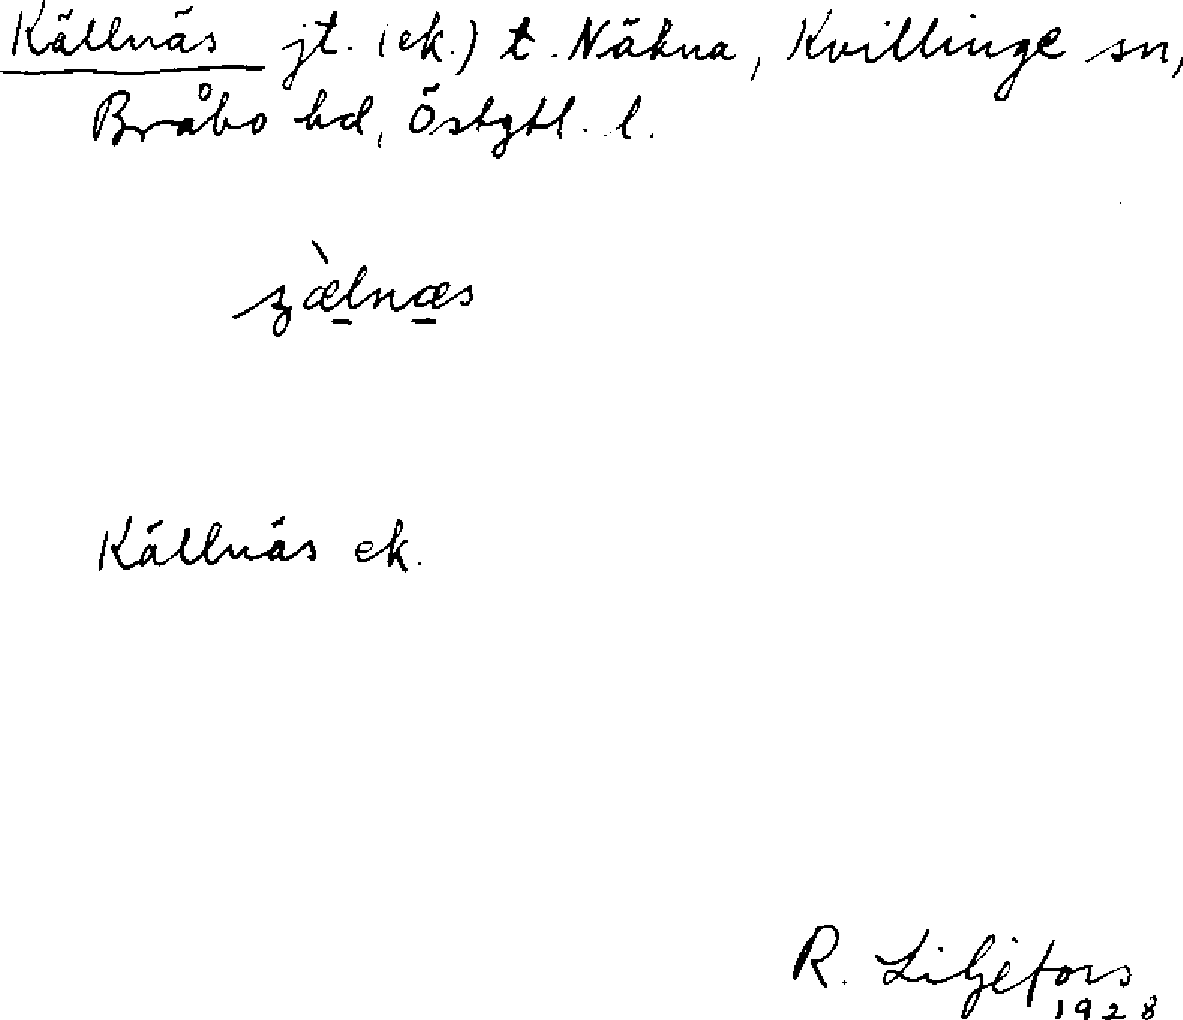 Källnäs jt. (ek.) t. Näkna, Kvillinge sn,
Bråbo hd, Östgtl. l.
ʒæ̀lnæs
Källnäs ek.
R. Liljefors
1928